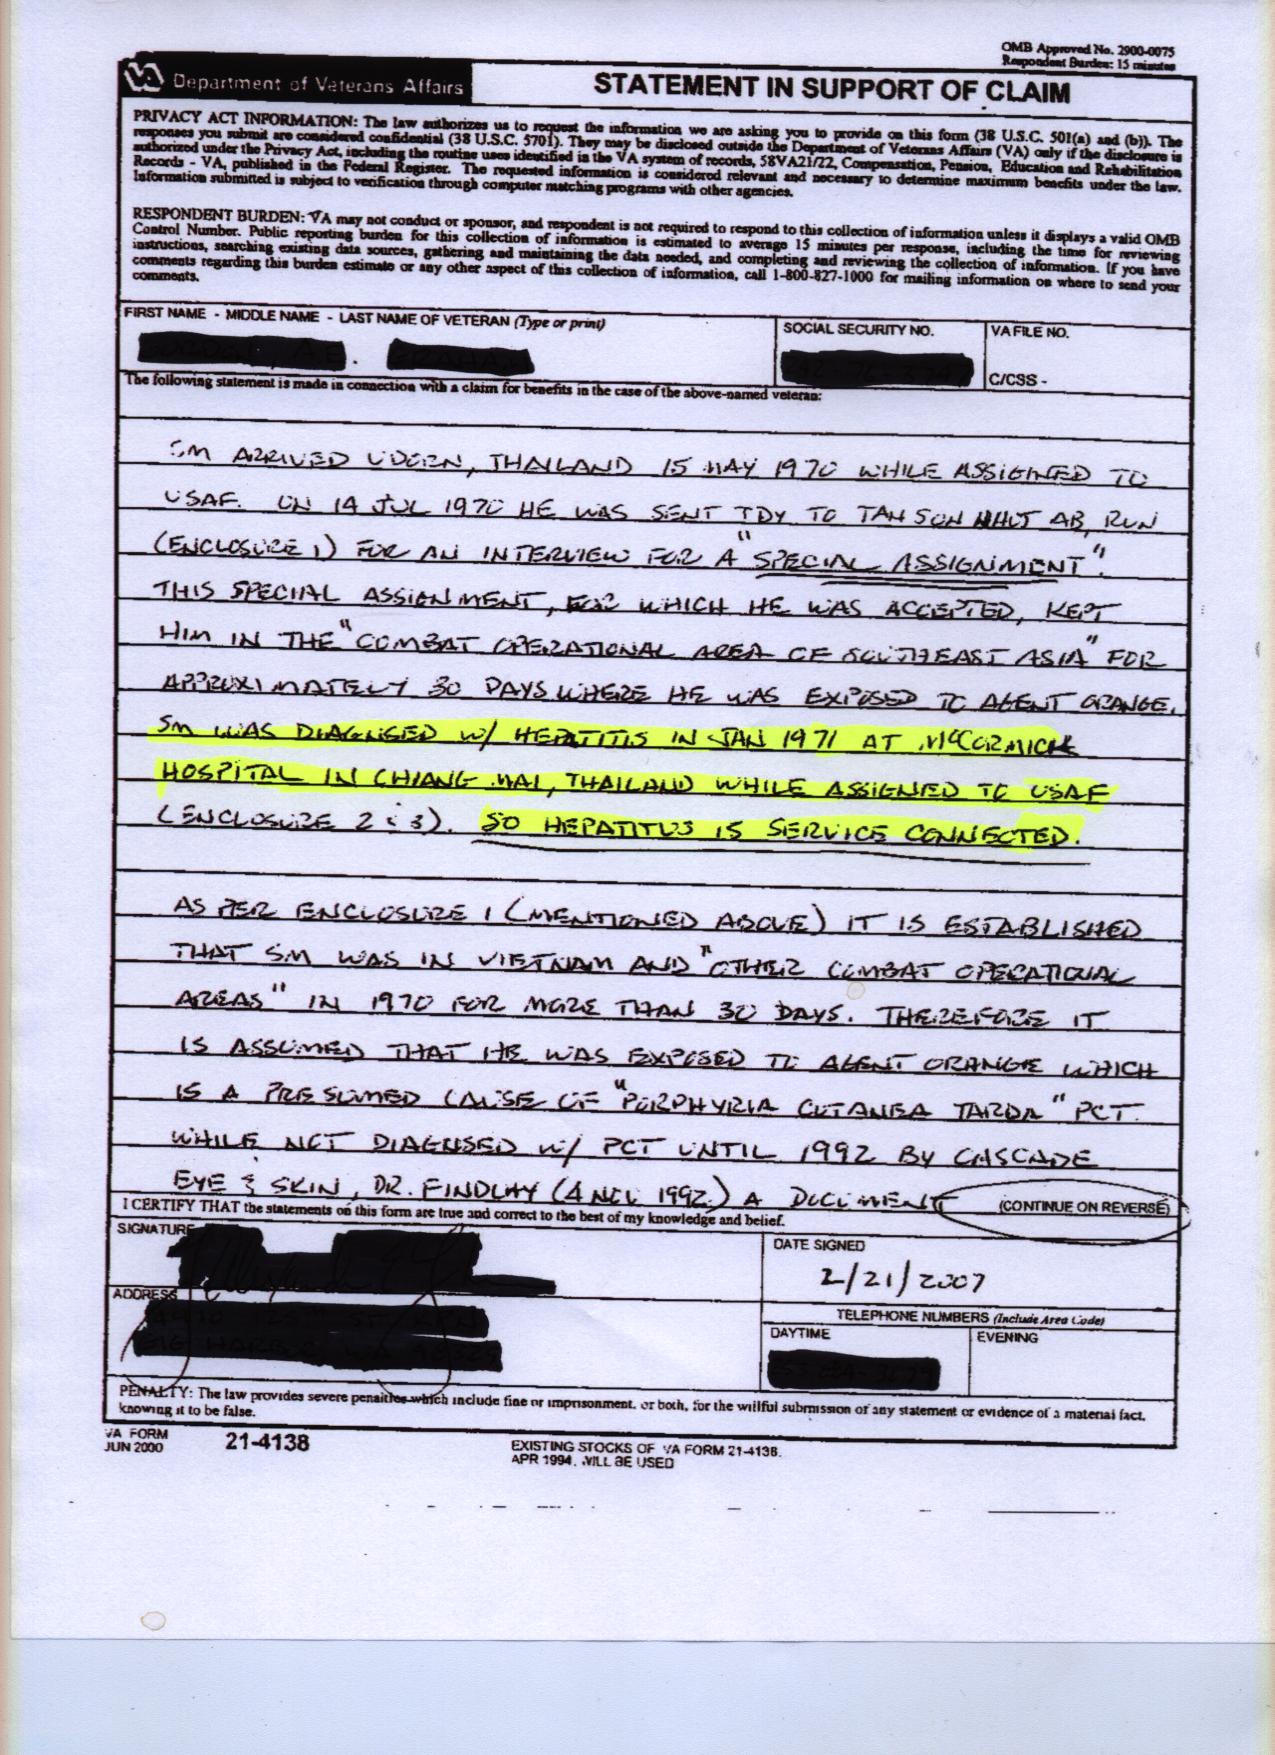 OMB Approved No. 2900-0075
Respondent Burden: 15 minutes
VA Department of Veterans Affairs
STATEMENT IN SUPPORT OF CLAIM
PRIVACY ACT INFORMATION: The law authorizes us to request the information we are asking you to provide on this form (38 U.S.C. 501(a) and (b)). The
responses you submit are considered confidential (38 U.S.C. 5701). They may be disclosed outside the Department of Veterans Affairs (VA) only if the disclosure is
authorized under the Privacy Act, including the routine uses identified in the VA system of records, 58VA21/22, Compensation, Pension, Education and Rehabilitation
Records - VA, published in the Federal Register. The requested information is considered relevant and necessary to determine maximum benefits under the law.
Information submitted is subject to verification through computer matching programs with other agencies.
RESPONDENT BURDEN: VA may not conduct or sponsor, and respondent is not required to respond to this collection of information unless it displays a valid OMB
Control Number. Public reporting burden for this collection of information is estimated to average 15 minutes per response, including the time for reviewing
instructions, searching existing data sources, gathering and maintaining the data needed, and completing and reviewing the collection of information. If you have
comments regarding this burden estimate or any other aspect of this collection of information, call 1-800-827-1000 for mailing information on where to send your
comments.
FIRST NAME - MIDDLE NAME - LAST NAME OF VETERAN (Type or print)
SOCIAL SECURITY NO.
VA FILE NO.
C/CSS -
The following statement is made in connection with a claim for benefits in the case of the above-named veteran:
SM ARRIVED UDORN, THAILAND 15 MAY 1970 WHILE ASSIGNED TO
USAF. ON 14 JUL 1970 HE WAS SENT TDY TO TAN SON NHUT AB, RVN
(ENCLOSURE 1) FOR AN INTERVIEW FOR A "SPECIAL ASSIGNMENT".
THIS SPECIAL ASSIGNMENT, FOR WHICH HE WAS ACCEPTED, KEPT
HIM IN THE "COMBAT OPERATIONAL AREA OF SOUTHEAST ASIA" FOR
APPROXIMATELY 30 DAYS WHERE HE WAS EXPOSED TO AGENT ORANGE.
SM WAS DIAGNSED W/ HEPATITIS IN JAN 1971 AT McCORMICK
HOSPITAL IN CHIANG MAI, THAILAND WHILE ASSIGNED TO USAF
(ENCLOSURE 2 & 3). SO HEPATITUS IS SERVICE CONNECTED.
AS PER ENCLOSURE 1 (MENTIONED ABOVE) IT IS ESTABLISHED
THAT SM WAS IN VIETNAM AND "OTHER COMBAT OPERATIONAL
AREAS" IN 1970 FOR MORE THAN 30 DAYS. THEREFORE IT
IS ASSUMED THAT HE WAS EXPOSED TO AGENT ORANGE WHICH
IS A PRESUMED CAUSE OF "PORPHYRIA CUTANEA TARDA" PCT.
WHILE NOT DIAGNSED W/ PCT UNTIL 1992 BY CASCADE
EYE & SKIN, DR. FINDLAY (4 NOV 1992) A DOCUMENT (CONTINUE ON REVERSE)
I CERTIFY THAT the statements on this form are true and correct to the best of my knowledge and belief.
SIGNATURE
DATE SIGNED
2/21/2007
ADDRESS
TELEPHONE NUMBERS (Include Area Code)
DAYTIME
EVENING
PENALTY: The law provides severe penalties which include fine or imprisonment, or both, for the willful submission of any statement or evidence of a material fact,
knowing it to be false.
VA FORM
JUN 2000
21-4138
EXISTING STOCKS OF VA FORM 21-4138,
APR 1994, WILL BE USED